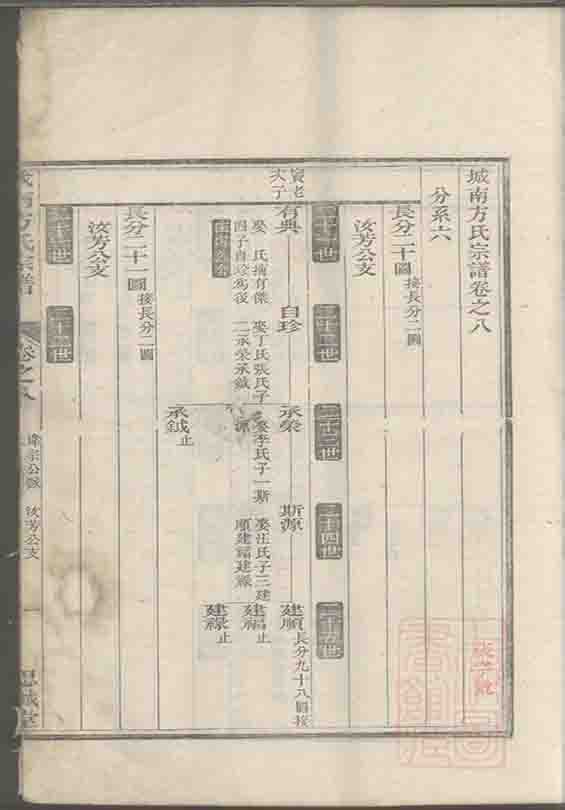 城南方氏宗譜卷之八
分系六
長分二十圖 接長分二圖
汝芳公支
二十一世
二十二世
二十三世
二十四世
二十五世
有典
自珍
承榮
斯源
建順 長分九十八圖接
娶 氏撫有傑
四子自珍為後
娶丁氏張氏子
二承榮承鉞
娶李氏子一斯
源
娶汪氏子三建
順建福建祿
建福 止
建祿 止
承鉞 止
長分二十一圖 接長分二圖
汝芳公支
城南方氏宗譜
卷之八
汝芳公支
一
思誠堂